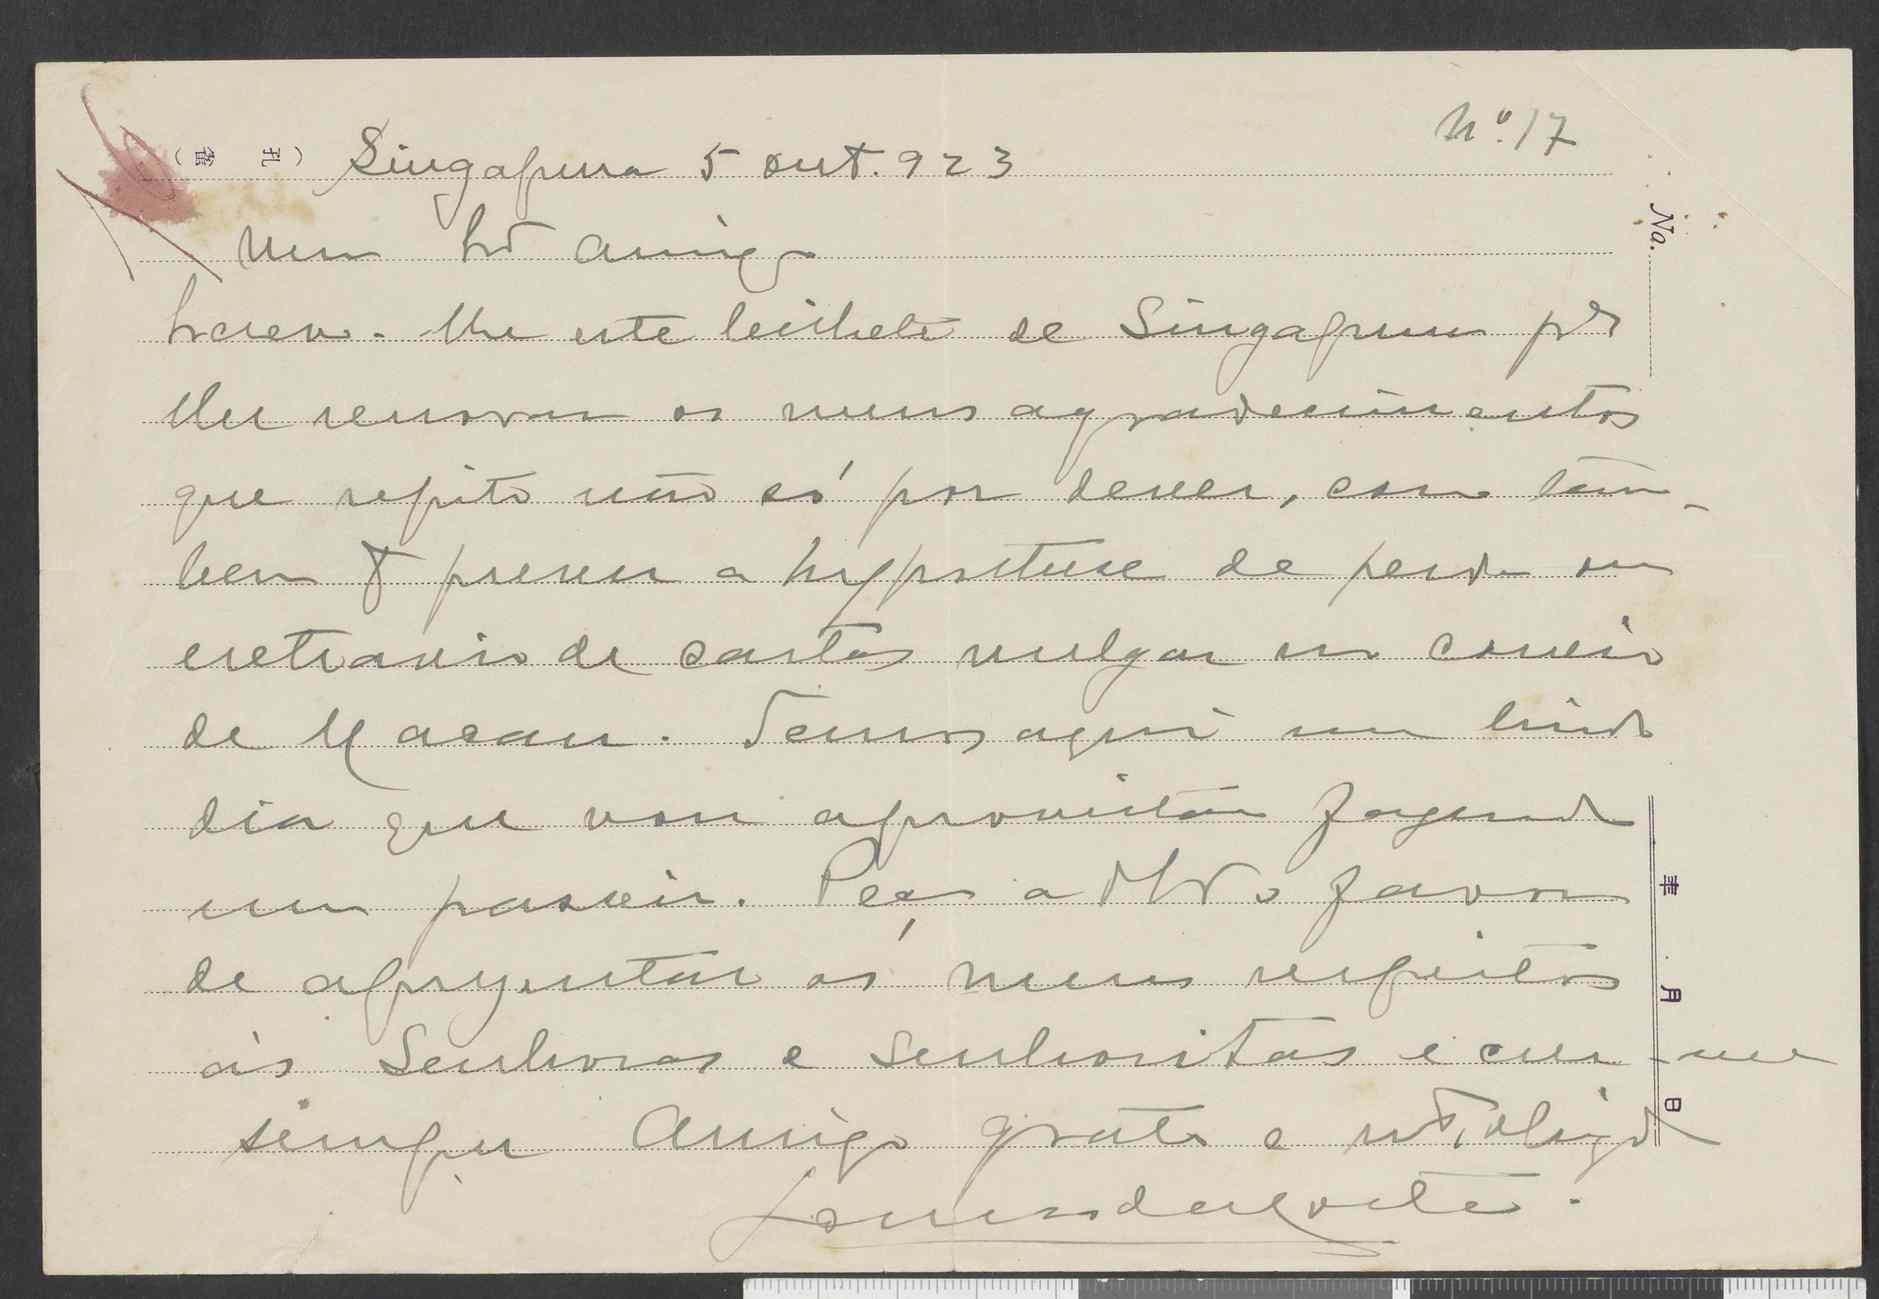 Nº 17
Singapura 5 out. 923
No.
Meu Amigo
Escrevo-lhe este bilhete de Singapura pª
lhe renovar os meus agradecimentos
que repito não só por dever, como tam-
bem pª prever a hypothese de perda ou
extravio de cartas vulgar no correio
de Macau. Temos aqui um lindo
dia que vou aproveitar fazendo
um passeio. Peço a o favor
de aprezentar os meus respeitos
ás Senhoras e Senhoritas e crer-me
sempre Amigo grato e mtº obrigdº
年 月 日